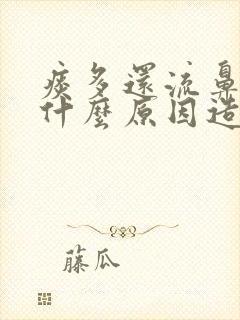 痰多還流鼻
什麼原因造
藤瓜